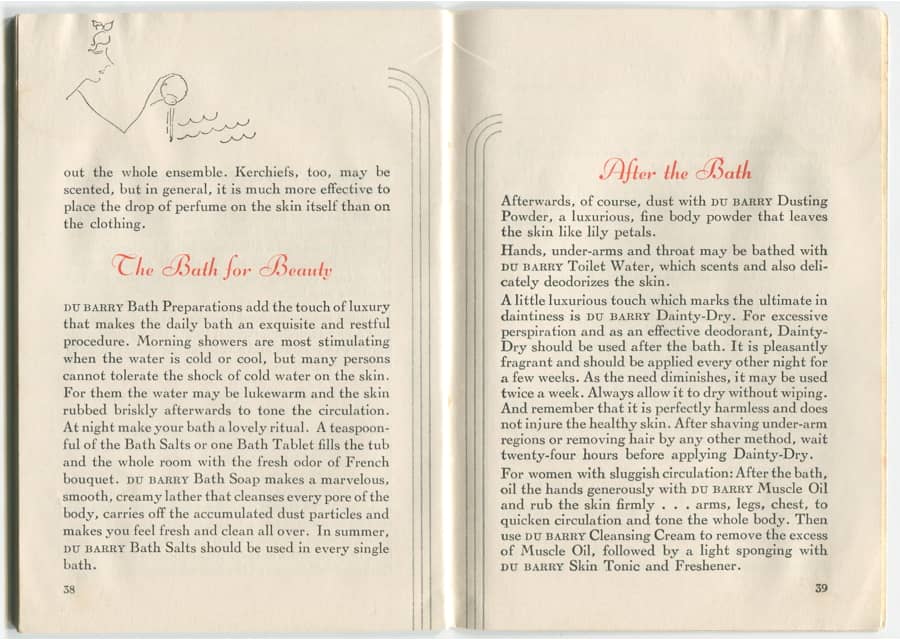 out the whole ensemble. Kerchiefs, too, may be
scented, but in general, it is much more effective to
place the drop of perfume on the skin itself than on
the clothing.
The Bath for Beauty
DU BARRY Bath Preparations add the touch of luxury
that makes the daily bath an exquisite and restful
procedure. Morning showers are most stimulating
when the water is cold or cool, but many persons
cannot tolerate the shock of cold water on the skin.
For them the water may be lukewarm and the skin
rubbed briskly afterwards to tone the circulation.
At night make your bath a lovely ritual. A teaspoon-
ful of the Bath Salts or one Bath Tablet fills the tub
and the whole room with the fresh odor of French
bouquet. DU BARRY Bath Soap makes a marvelous,
smooth, creamy lather that cleanses every pore of the
body, carries off the accumulated dust particles and
makes you feel fresh and clean all over. In summer,
DU BARRY Bath Salts should be used in every single
bath.
38
After the Bath
Afterwards, of course, dust with DU BARRY Dusting
Powder, a luxurious, fine body powder that leaves
the skin like lily petals.
Hands, under-arms and throat may be bathed with
DU BARRY Toilet Water, which scents and also deli-
cately deodorizes the skin.
A little luxurious touch which marks the ultimate in
daintiness is DU BARRY Dainty-Dry. For excessive
perspiration and as an effective deodorant, Dainty-
Dry should be used after the bath. It is pleasantly
fragrant and should be applied every other night for
a few weeks. As the need diminishes, it may be used
twice a week. Always allow it to dry without wiping.
And remember that it is perfectly harmless and does
not injure the healthy skin. After shaving under-arm
regions or removing hair by any other method, wait
twenty-four hours before applying Dainty-Dry.
For women with sluggish circulation: After the bath,
oil the hands generously with DU BARRY Muscle Oil
and rub the skin firmly . . . arms, legs, chest, to
quicken circulation and tone the whole body. Then
use DU BARRY Cleansing Cream to remove the excess
of Muscle Oil, followed by a light sponging with
DU BARRY Skin Tonic and Freshener.
39